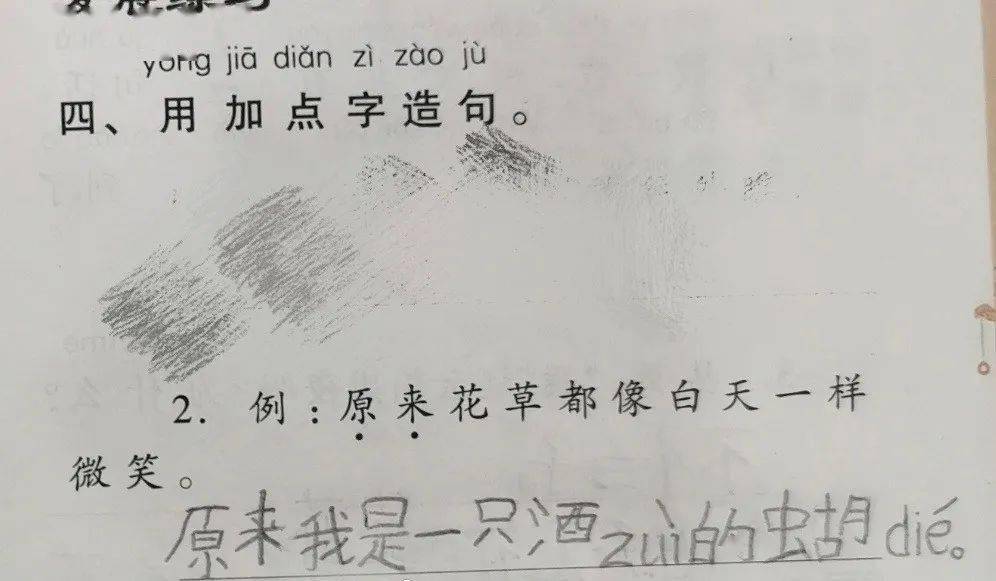 yòng jiā diǎn zì zào jù
四、用加点字造句。
2. 例：原来花草都像白天一样
微笑。
原来我是一只酒zuì的虫胡dié。